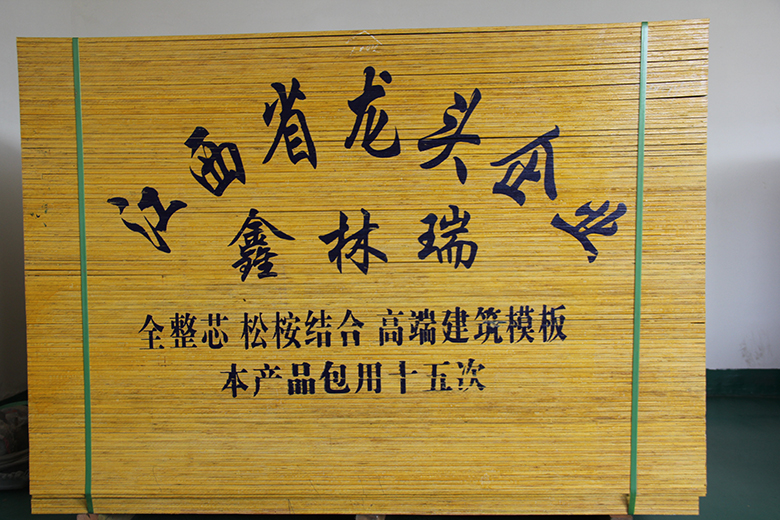 江西省龙头
鑫林瑞
全整芯 松桉结合 高端建筑模板
本产品包用十五次